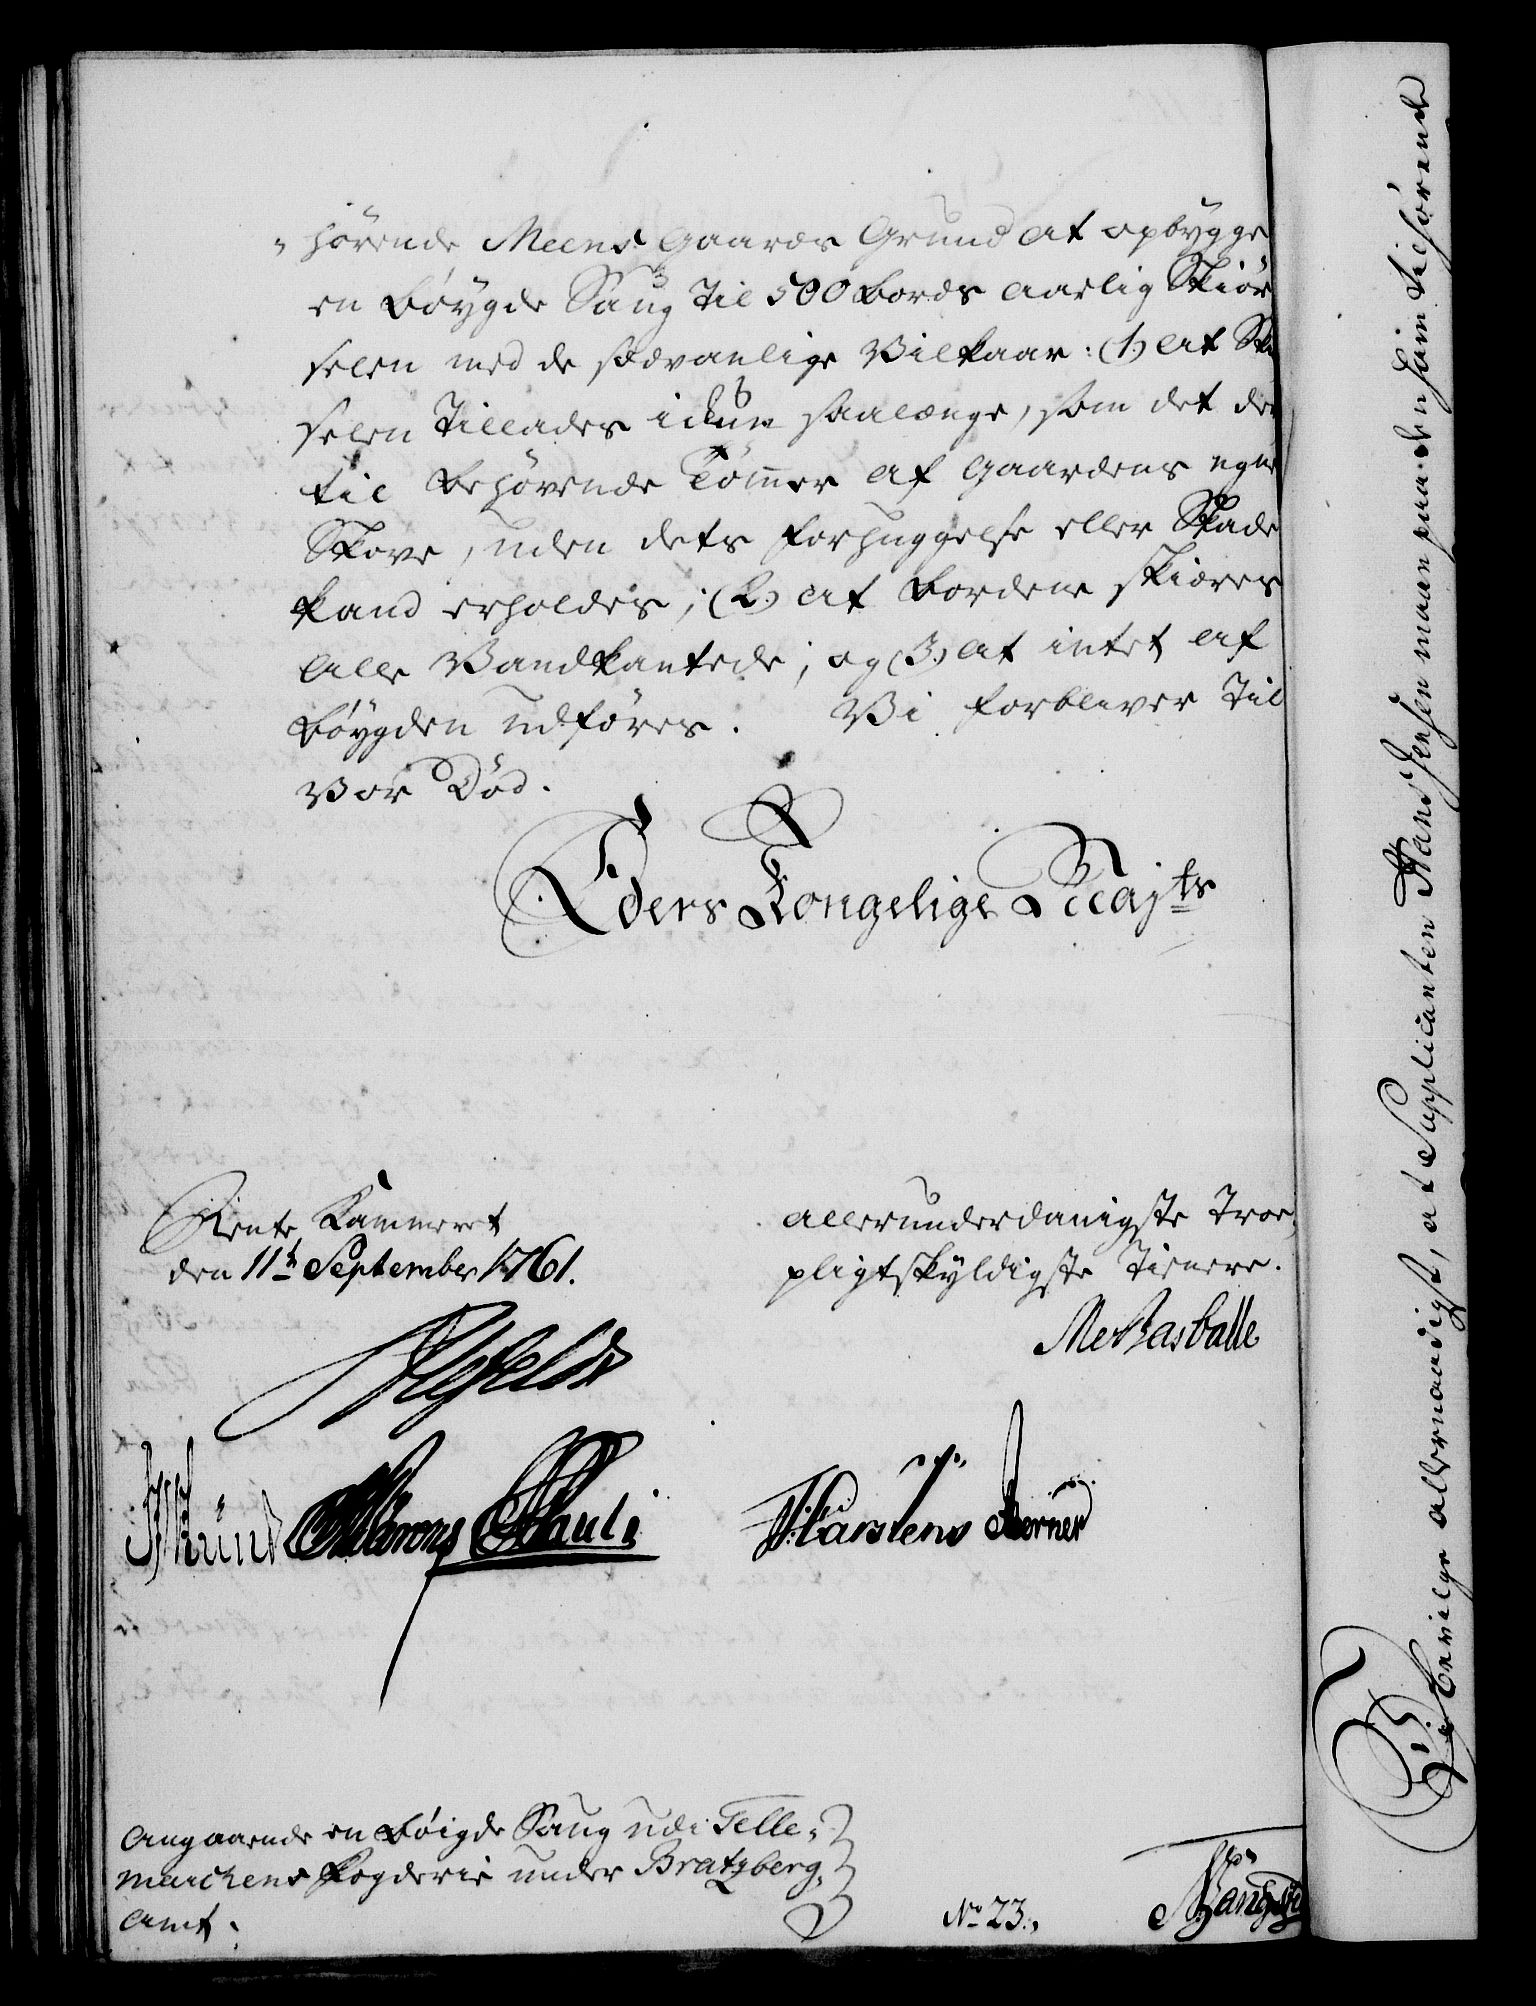 „hörende Meens Gaards Grund at opbygge
en Böygde Saug til 500 Bords aarlig Skiör
selen med de sædvanlige Vilkaar: (1.) at Ski
selen tillades ickun saalænge, som det der
til behövende Tömmer af Gaardens egne
Skove, uden dets forhuggelse eller Skade
kand erholdes; (2.) at Bordene skiæres
alle Vandkantede; og (3.) at intet af
Böygden udföres. Vi forbliver til
Vor Död.
Eders Kongelige Majts
Rente Kammeret
den 11te September 1761.
allerunderdanigste Troe,
pligtskyldigste Tienere.
Ahlefeldt
Pauli
Carstens
Angaaende en Böigde Saug udi Telle„
marchens Fogderie under Bratzberg„
Amt.
No 23.„
Vi bevilge allernaadigst, at Supplicanten Hans Jensen maae paa den ham tilhörende